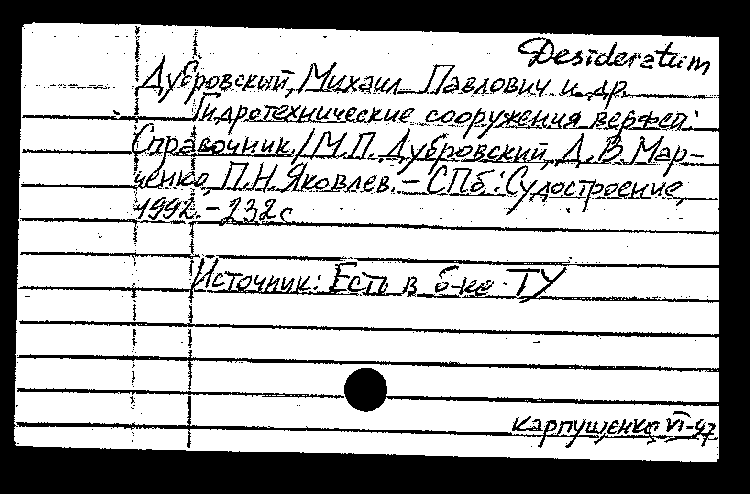 Desideratum
Дубровский, Михаил Павлович и др.
Гидротехнические сооружения верфей:
Справочник / М.П. Дубровский, Д.В. Мар-
ченко, П.Н. Яковлев. – СПб.: Судостроение,
1992. – 232 с
Источник: Есть в б-ке ТУ
Карпушенко VI-97